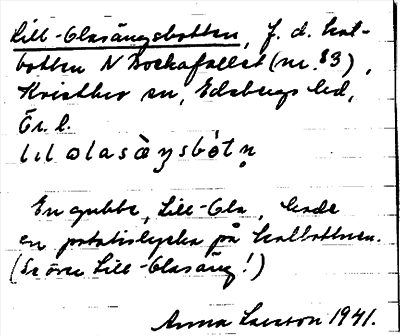 Lill-Olasängsbotten, f. d. kol-
botten N Bockafallet (nr. 83),
Kvistbro sn, Edsbergs hd,
Ör. l.
lɩl olasàŋsbòtṇ
En gubbe, Lill-Ola, hade
en potatislycka på kolbottnen.
(Se även Lill-Olasäng!)
Anna Larsson 1941.